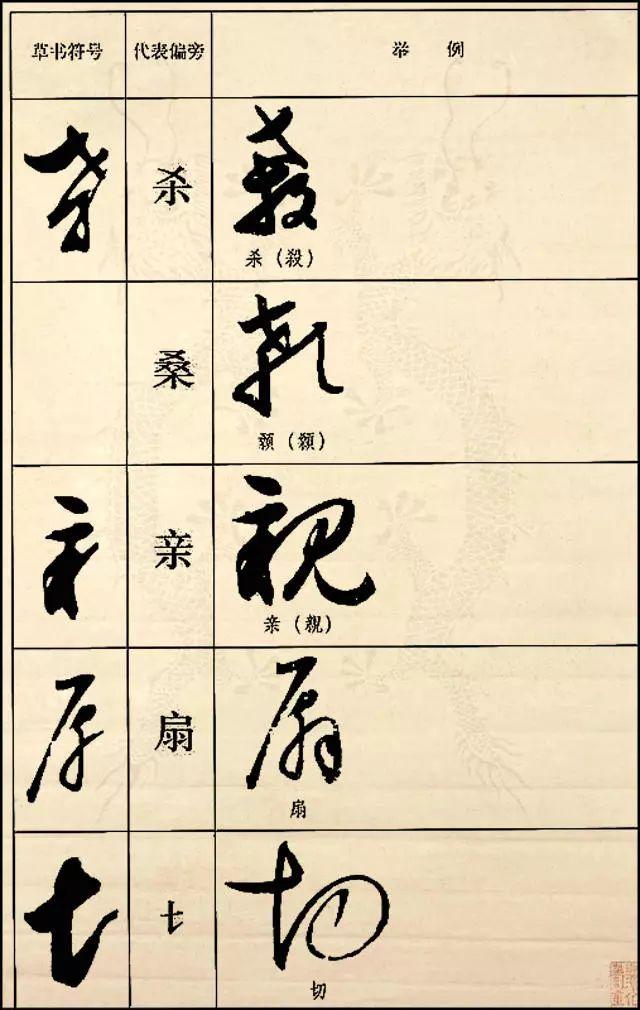 草书符号 代表偏旁 举例
杀
杀（殺）
桑
颡（顙）
亲
亲（親）
扇
扇
七
切